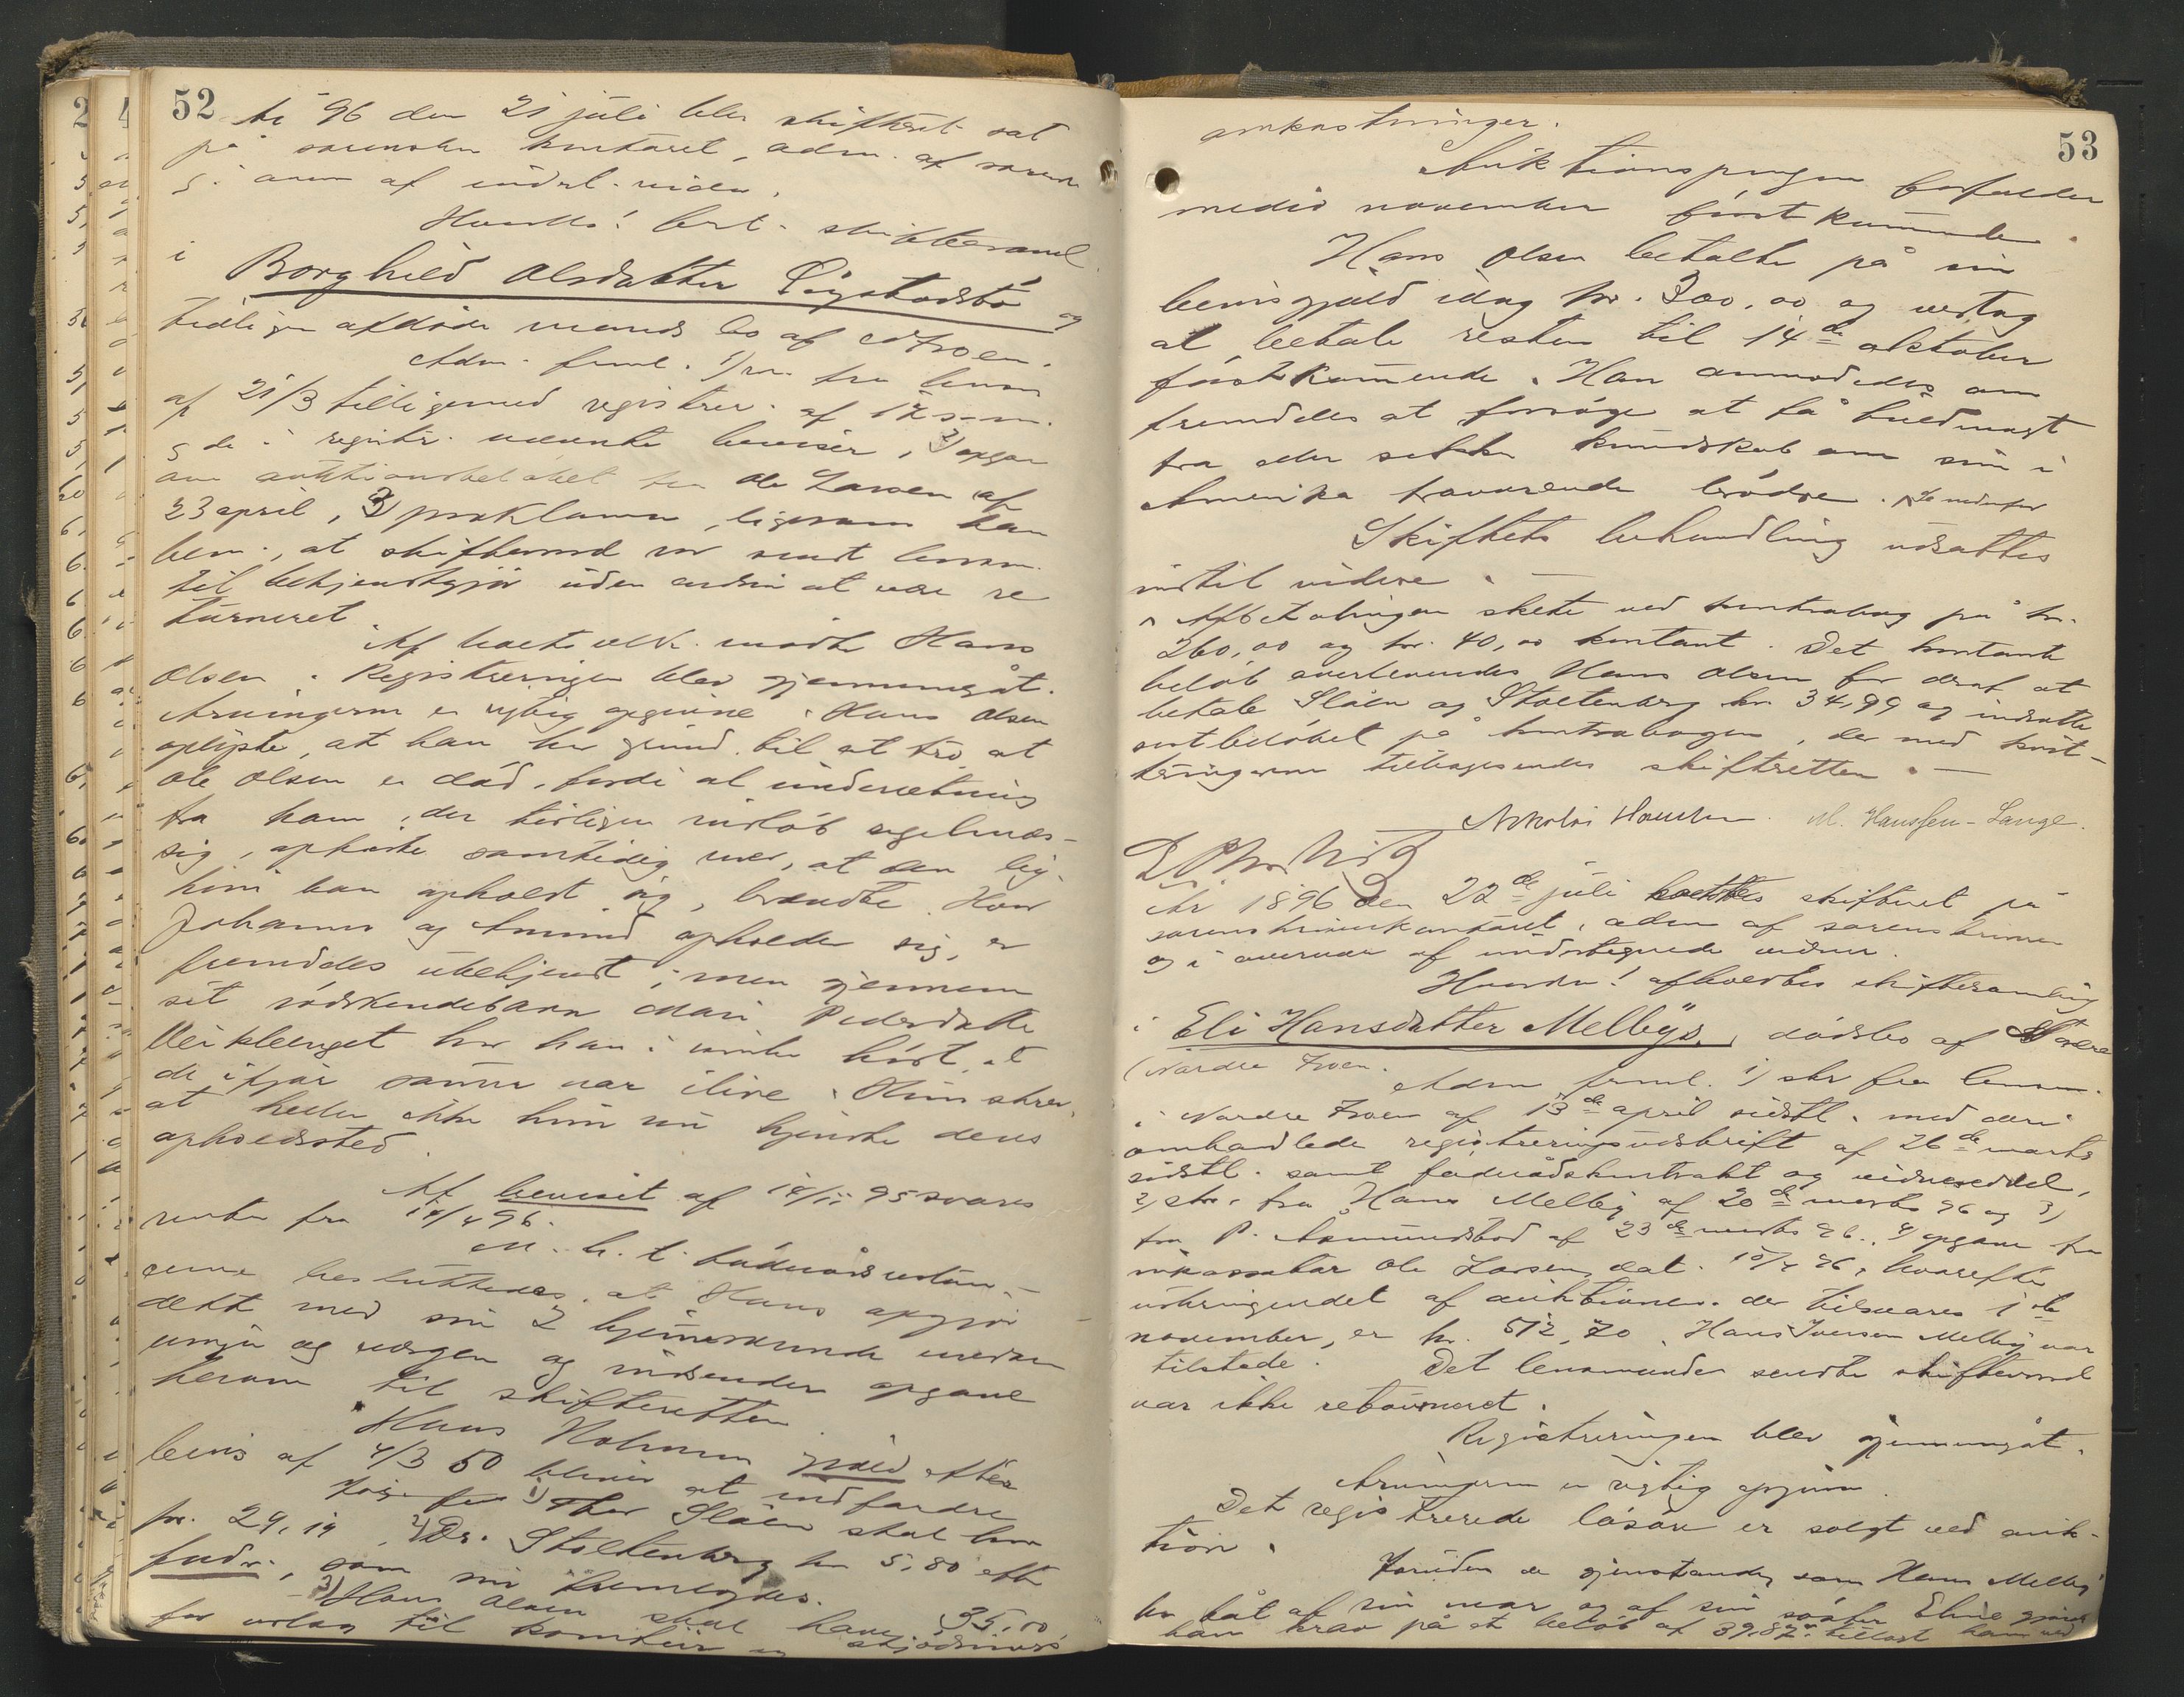 52
År 96 den 21 juli blev skifteret sat
på sorenskr kontoret, adm. af sorenskr
g i overv af undert. vidner.
Hvorda! best. skiftesaml.
i
Borghild Olsdatter Sygstadsbø og
tidligere afdøde mands bo af
Adm. freml. 1) fra lensm
af 21/3 tilligemed registrer. af 17 s. m.
g de i registr. nævnte beviser, 2) opgav
om auktionsbeløbet fra Ole Larsen af
23 april, 3) proklama, ligesom han
bem., at skiftevarsel var sendt lensm.
til bekjendtgjør uden endnu at være re
turneret
Af boets vedk. mødte Hans
Olsen. Registreringen blev gjennemgåt.
Arvingerne er rigtig opgivne. Hans Olsen
oplyste, at han har grund til at tro, at
Ole Olsen er død, fordi al underretning
fra ham, der tidligere indløb regelmæs-
sig, ophørte samtidig med, at den byg-
hvori han opholdt sig, brændte. Hvor
Johannes og Amund opholder sig, er
fremdeles ubekjendt; men gjennem
sit sødskendebarn Mari Pedersdatter
Veikleenget har han i vinter hørt, at
de ifjor sommer var ilive. Hun skrev,
at heller ikke hun nu kjendte deres
opholdssted.
Af beviset af 14/11 95 svares
renter fra 14/4 96.
M. h. t. føderådsrestan-
cerne besluttedes, at Hans opgjør
dette med sin
umyn og værgen og indsender opgave
herom til skifteretten
Hans Holmen gjæld efter
bevis af 4/3 80 bliver at indfordre
1) Thor Slåen skal have
kr. 29,19, 2) Dr. Stoltenberg kr 5,80 efter
fodr., som nu fremlagdes.
3) Hans Olsen skal have 35,00
for utlæg til
53
omkostninger.
Auktionspengene forfalder
medio november førstkommende.
Hans Olsen betalte på sin
bevisgjæld idag kr. 300,00 og vedtog
at betale resten til 14de oktober
førstkommende. Han anmodedes om
fremdeles at forsøge at få fuldmagt
fra eller sikker kundskab om sin i
Amerika fraværende brødre. ^ Se nedenfor
Skiftets behandling udsattes
indtil videre. —
^ Afbetalingen skete ved kontrabog på kr.
260,00 og kr. 40,00 kontant. Det kontante
beløb overleveredes Hans Olsen for deraf at
betale Slåen og Stoltenberg kr 34,99 og indsætte
restbeløbet på kontrabogen, der med kvit-
teringerne tilbagesendes skifteretten. —
Nikolai M. Hanssen-Lange.
År 1896 den 22de juli holdtes skifteret på
sorenskriverkontoret, adm af sorenskriver
og i overvær af undertegnede vidner.
Hvorda! afholdtes skiftesamling
i Eli Hansdatter Melbys, dødsbo af
(Nordre Froen.
Adm freml. 1) skr fra lensm.
i Nordre Froen af 13de april sidstl. med deri
omhandlede registreringsudskrift af 26de marts
sidstl. samt føderådskontrakt og vidneseddel,
2) skr. fra Hans Melby af 20de marts 96 og 3)
fra P. Amundstad af 23de marts 96., 4) opgave fra
inkassator Ole Larsen dat. 10/7 96, hvorefter
udbringendet af auktionen, der tilsvares 1ste
november, er kr. 512,70. Hans Iversen Melby var
tilstede. Det lensmanden sendte skiftevarsel
var ikke returneret.
Registreringen blev gjennemgåt.
Arvingerne er rigtig opgivne.
Det registrerede løsøre er solgt ved auk-
tion.
Foruden de gjenstande, som Hans Melby
har fåt af sin mor og af sin søster Eline
han krav på et beløb af 39,87